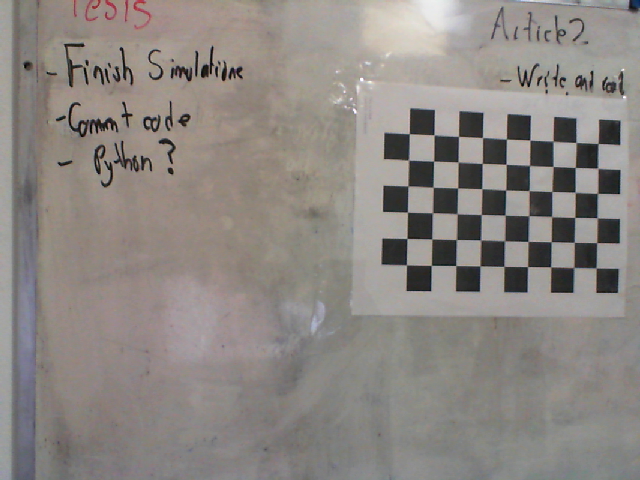 Tesis
- Finish Simulatione
- Commt code
- Python?
Article 2
- Write and